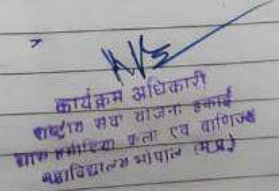 कार्यक्रम अधिकारी
राष्ट्रीय सेवा योजना इकाई
कला एवं वाणिज्य
महाविद्यालय भोपाल (म.प्र.)